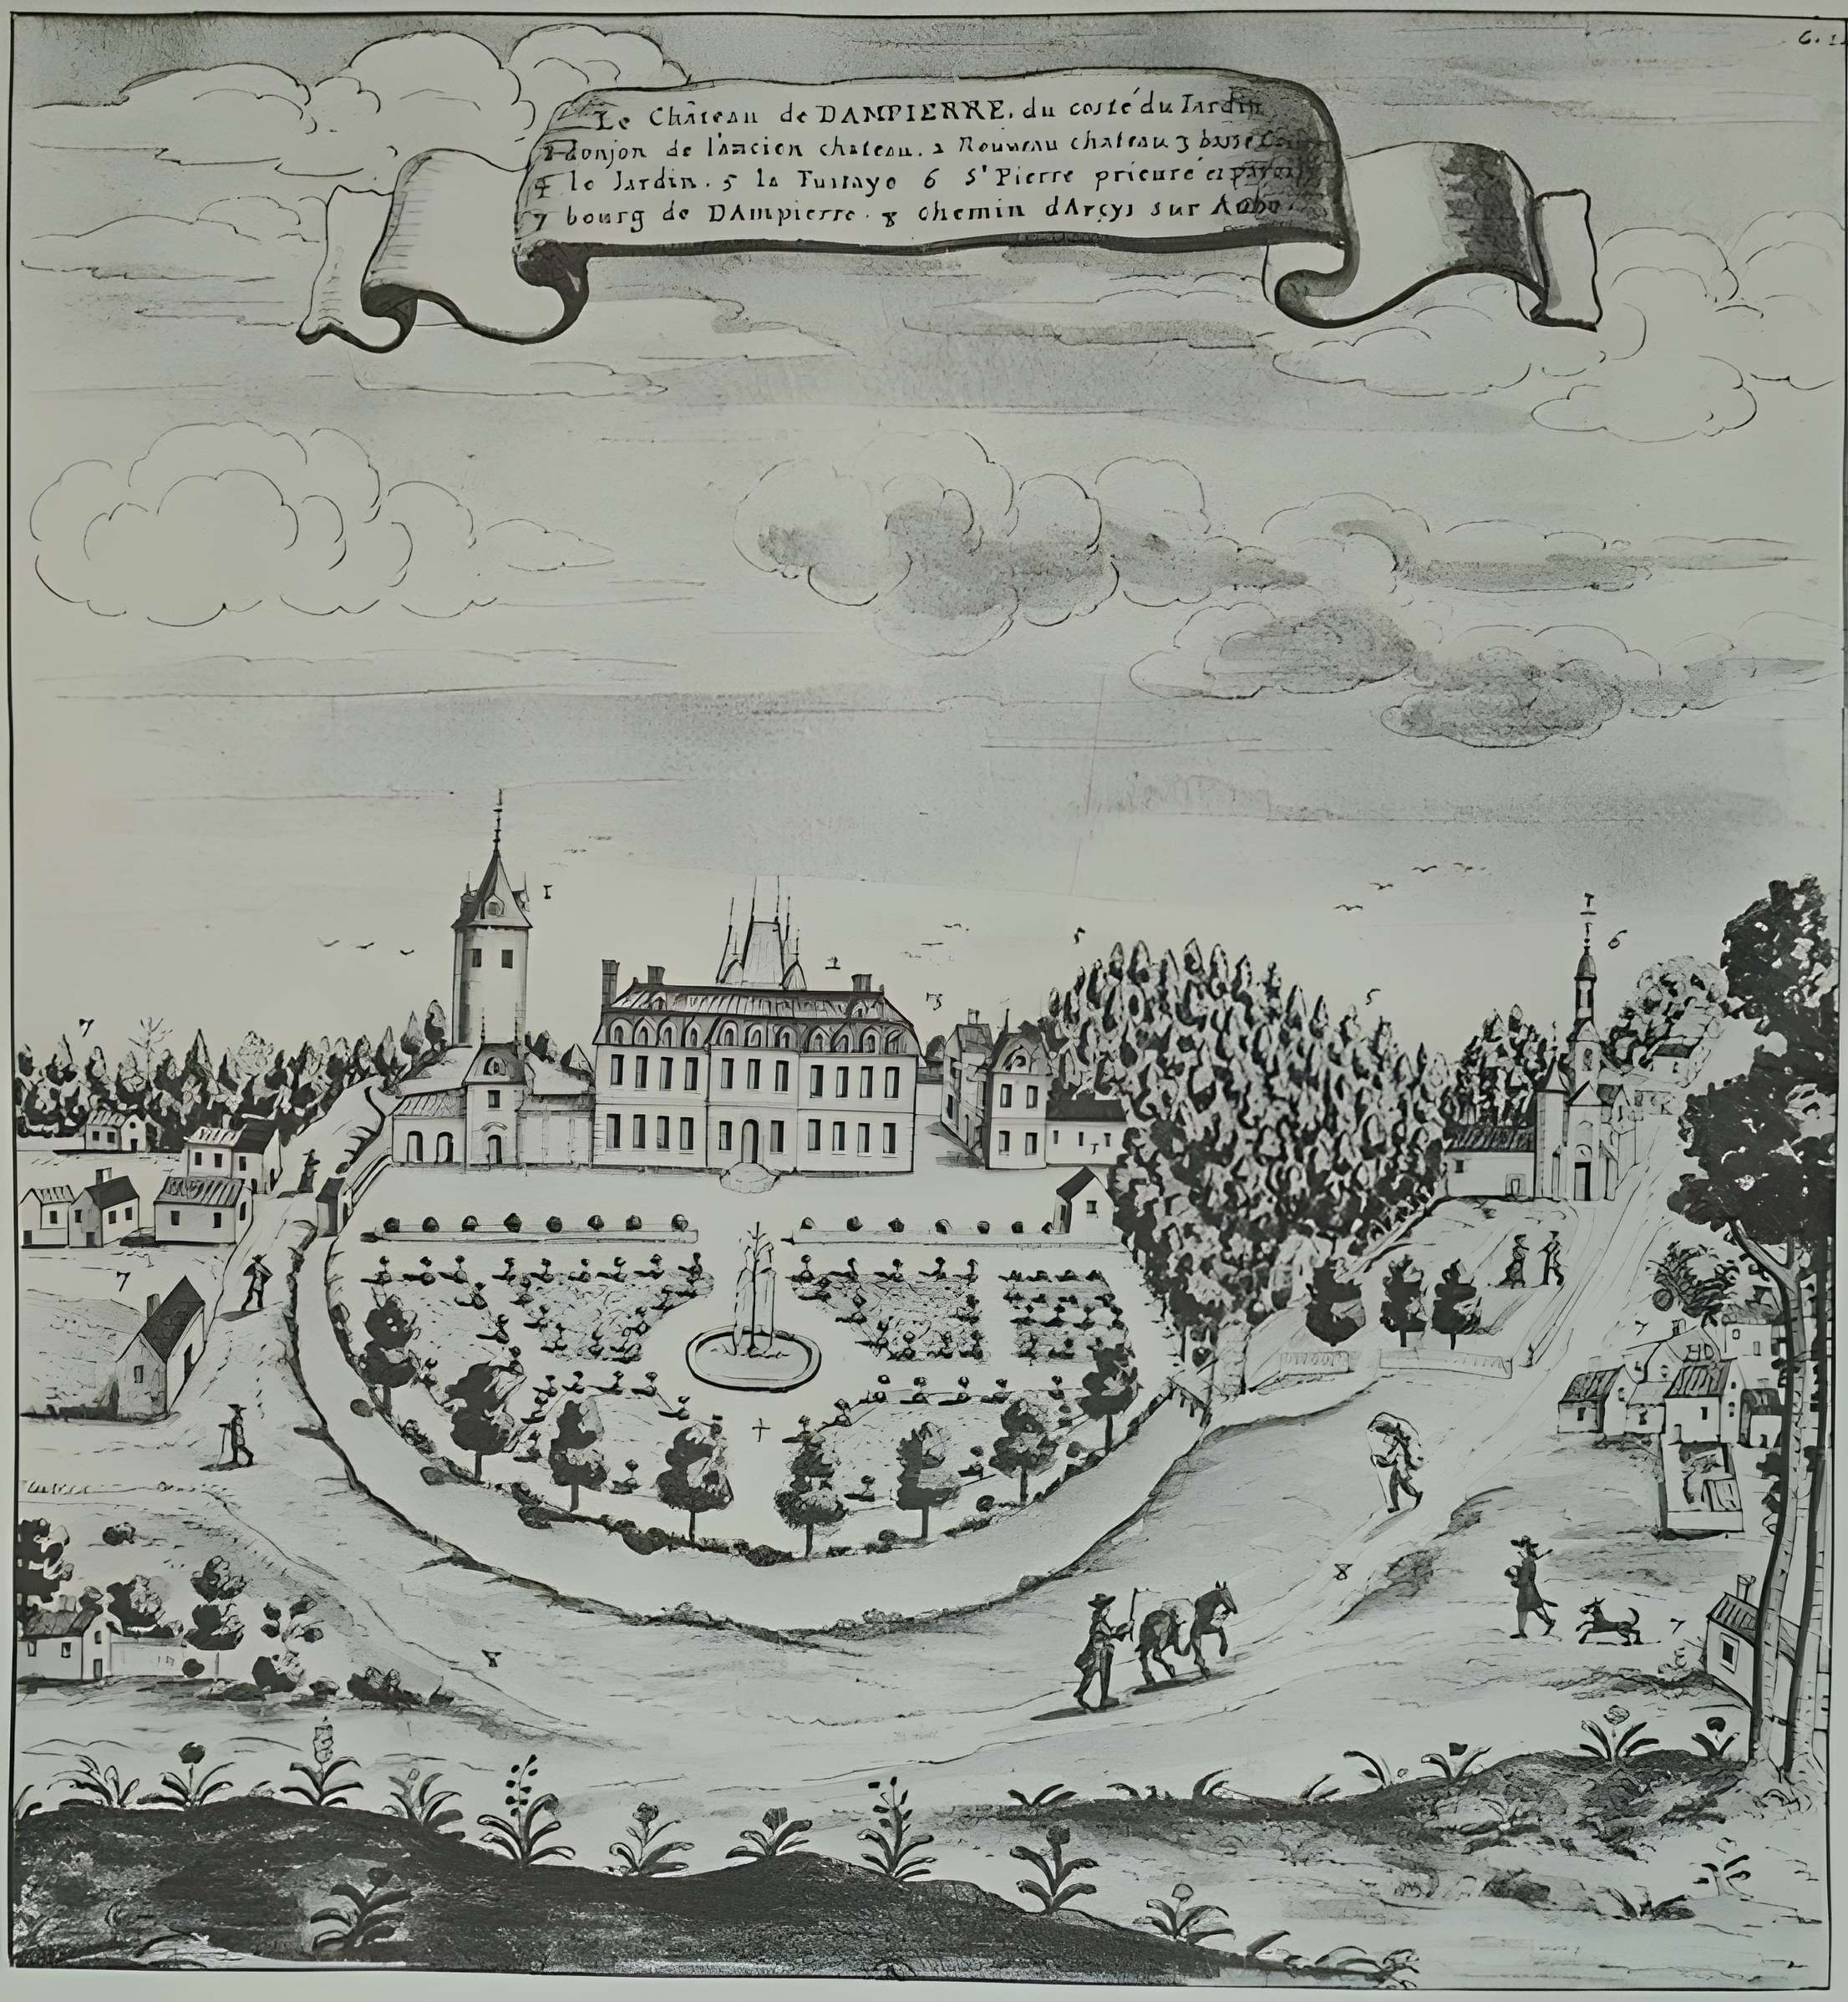 6.
Le Château de DAMPIERRE. du costé du Jardin
1 donjon de l'ancien chateau. 2 Nouveau chateau 3 basse
4 le Jardin. 5 la Fustaye 6 St Pierre prieuré et
7 bourg de DAmpierre. 8 chemin dArcys sur Aube
1
2
5
6
3
5
7
7
7
4
8
8
7